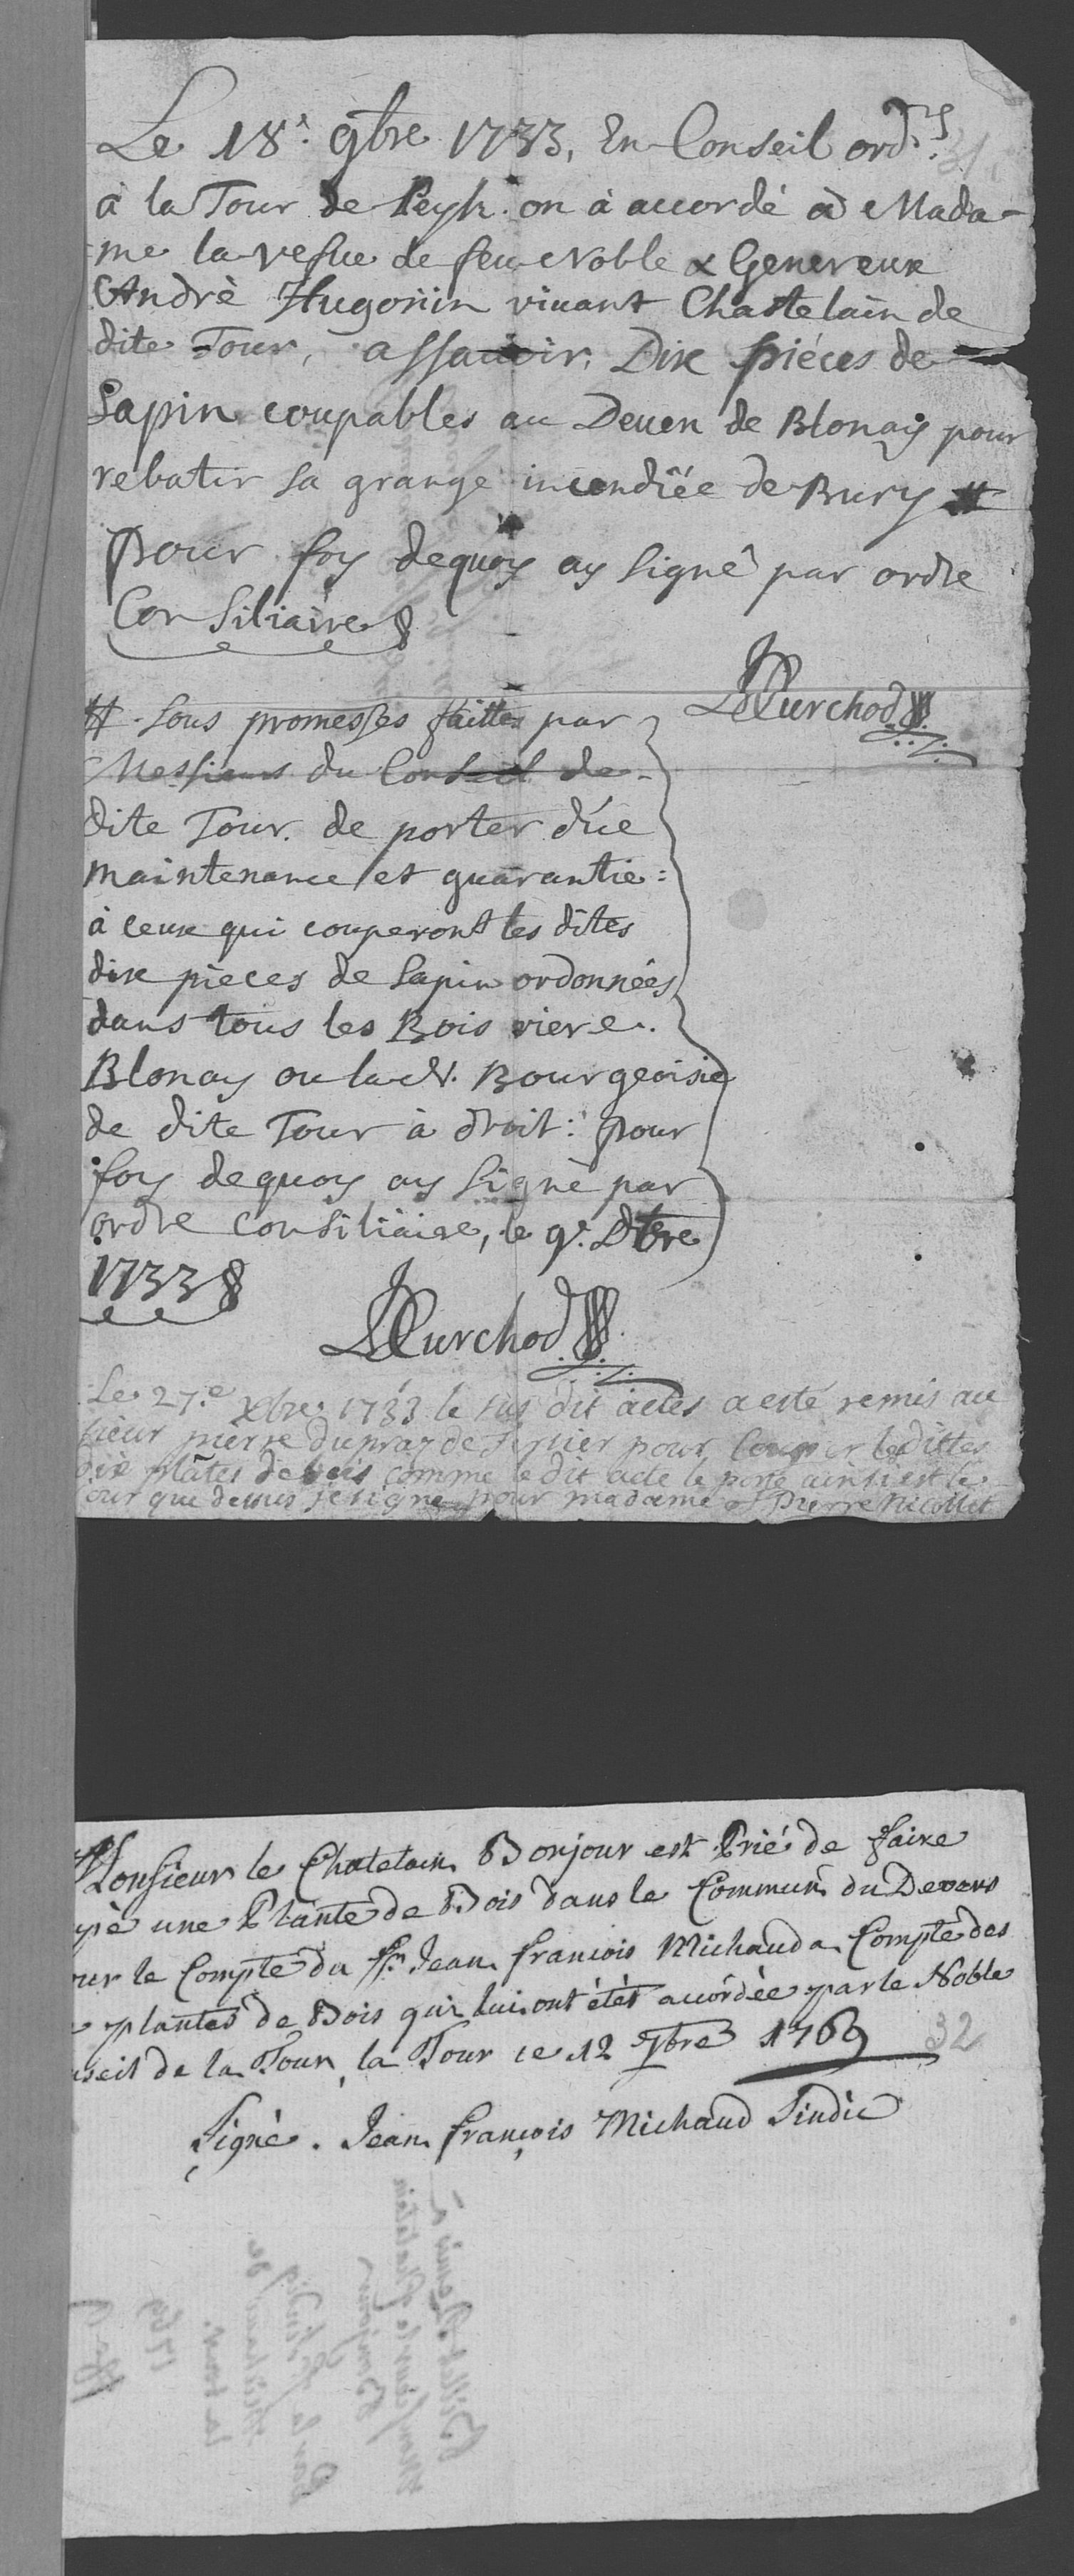 Le 18.e 9bre 1733, En Conseil ord.re
31.
à la Tour de Peylz. on à accordé à Mada-
me la vefue de feu Noble & Genereux
André Hugonin vivant Chastelain de
dite Tour, assavoir, Dix piéces de
Sapin coupables au Deuen de Blonay pour
rebatir sa grange incendiée de Bury #
Pour foy dequoy ay signé par ordre
Consiliaire
Curchod
# Sous promesses faittes par
Messieurs du Conseil de-
dite Tour. de porter düe
maintenance et guarantie:
à ceux qui couperont les dites
dix pieces de Sapin ordonnées
dans tous les Bois riere.
Blonay ou la N. Bourgeoisie
de dite Tour à droit: pour
foy dequoy ay signé par
ordre consiliaire, le 9.e Dbre
1733
Curchod
Le 27.e Xbre 1733 le sus dit actes a esté remis au
sieur pierre dupraz de pour Couper le dittes
dix plâtes de bois comme le dit acte le porte ainsi est le
jour que dessus je signe pour madame Pierre Nicollet
Monsieur le Chatelain Bonjour est Prié de faire
une Plante de Bois dans le Commun du Devens
our le Compte du Sr. Jean francois Michaud a Compte des
plantes de Bois qui lui ont étés accordée par le Noble
nseil de la Tour, la Tour ce 12 9bre 1769
32
Signé. Jean françois Michaud Sindic